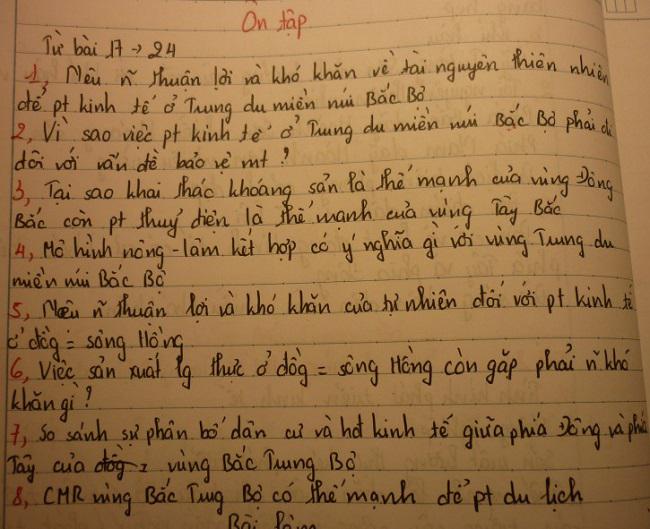 Ôn tập
Từ bài 17 → 24
1, Nêu ñ thuận lợi và khó khăn về tài nguyên thiên nhiên
để pt kinh tế ở Trung du miền núi Bắc Bộ
2, Vì sao việc pt kinh tế ở Trung du miền núi Bắc Bộ phải đi
đôi với vấn đề bảo vệ mt ?
3, Tại sao khai thác khoáng sản là thế mạnh của vùng Đông
Bắc còn pt thuỷ điện là thế mạnh của vùng Tây Bắc
4, Mô hình nông - lâm kết hợp có ý nghĩa gì với vùng Trung du
miền núi Bắc Bộ
5, Nêu ñ thuận lợi và khó khăn của tự nhiên đối với pt kinh tế
ở đồg = sông Hồng
6, Việc sản xuất lg thực ở đồg = sông Hồng còn gặp phải ñ khó
khăn gì ?
7, So sánh sự phân bố dân cư và hđ kinh tế giữa phía Đông và phía
Tây của vùng Bắc Trung Bộ
8, CMR vùng Bắc Trung Bộ có thế mạnh để pt du lịch
Bài làm